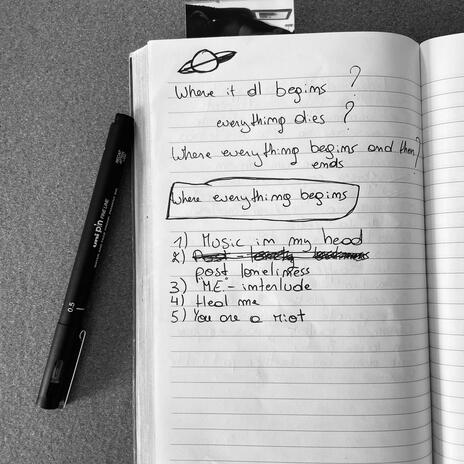 Where it all begins ?
everything dies ?
Where everything begins and then ?
ends
Where everything begins
1) Music in my head
2) Post - lonely
post loneliness
3) "ME" - interlude
4) Heal me
5) You are a riot
uni pin FINE LINE
0.5